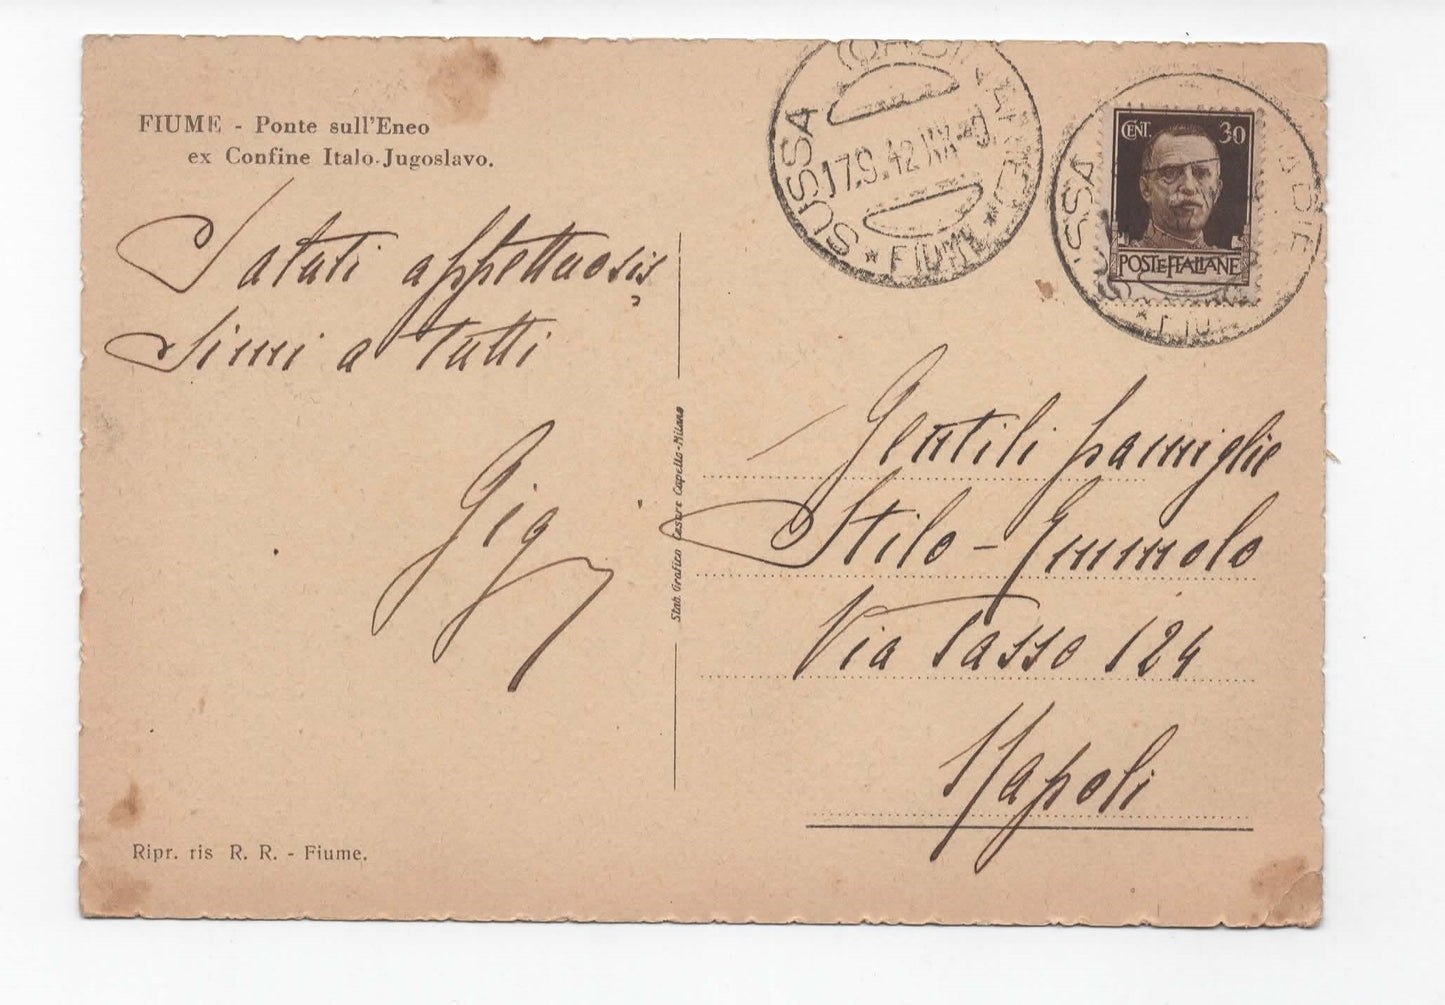 FIUME - Ponte sull'Eneo
ex Confine Italo-Jugoslavo.
Saluti affettuosis
simi a tutti
Gigi
Stab. Grafico Cesare Capello-Milano
Ripr. ris R. R. - Fiume.
SUSSA
17.9.42 XX-9
* FIUME *
CENT. 30
POSTE ITALIANE
SUSSA
* FIU
Gentili famiglie
Stilo - Emmolo
Via Tasso 124
Napoli